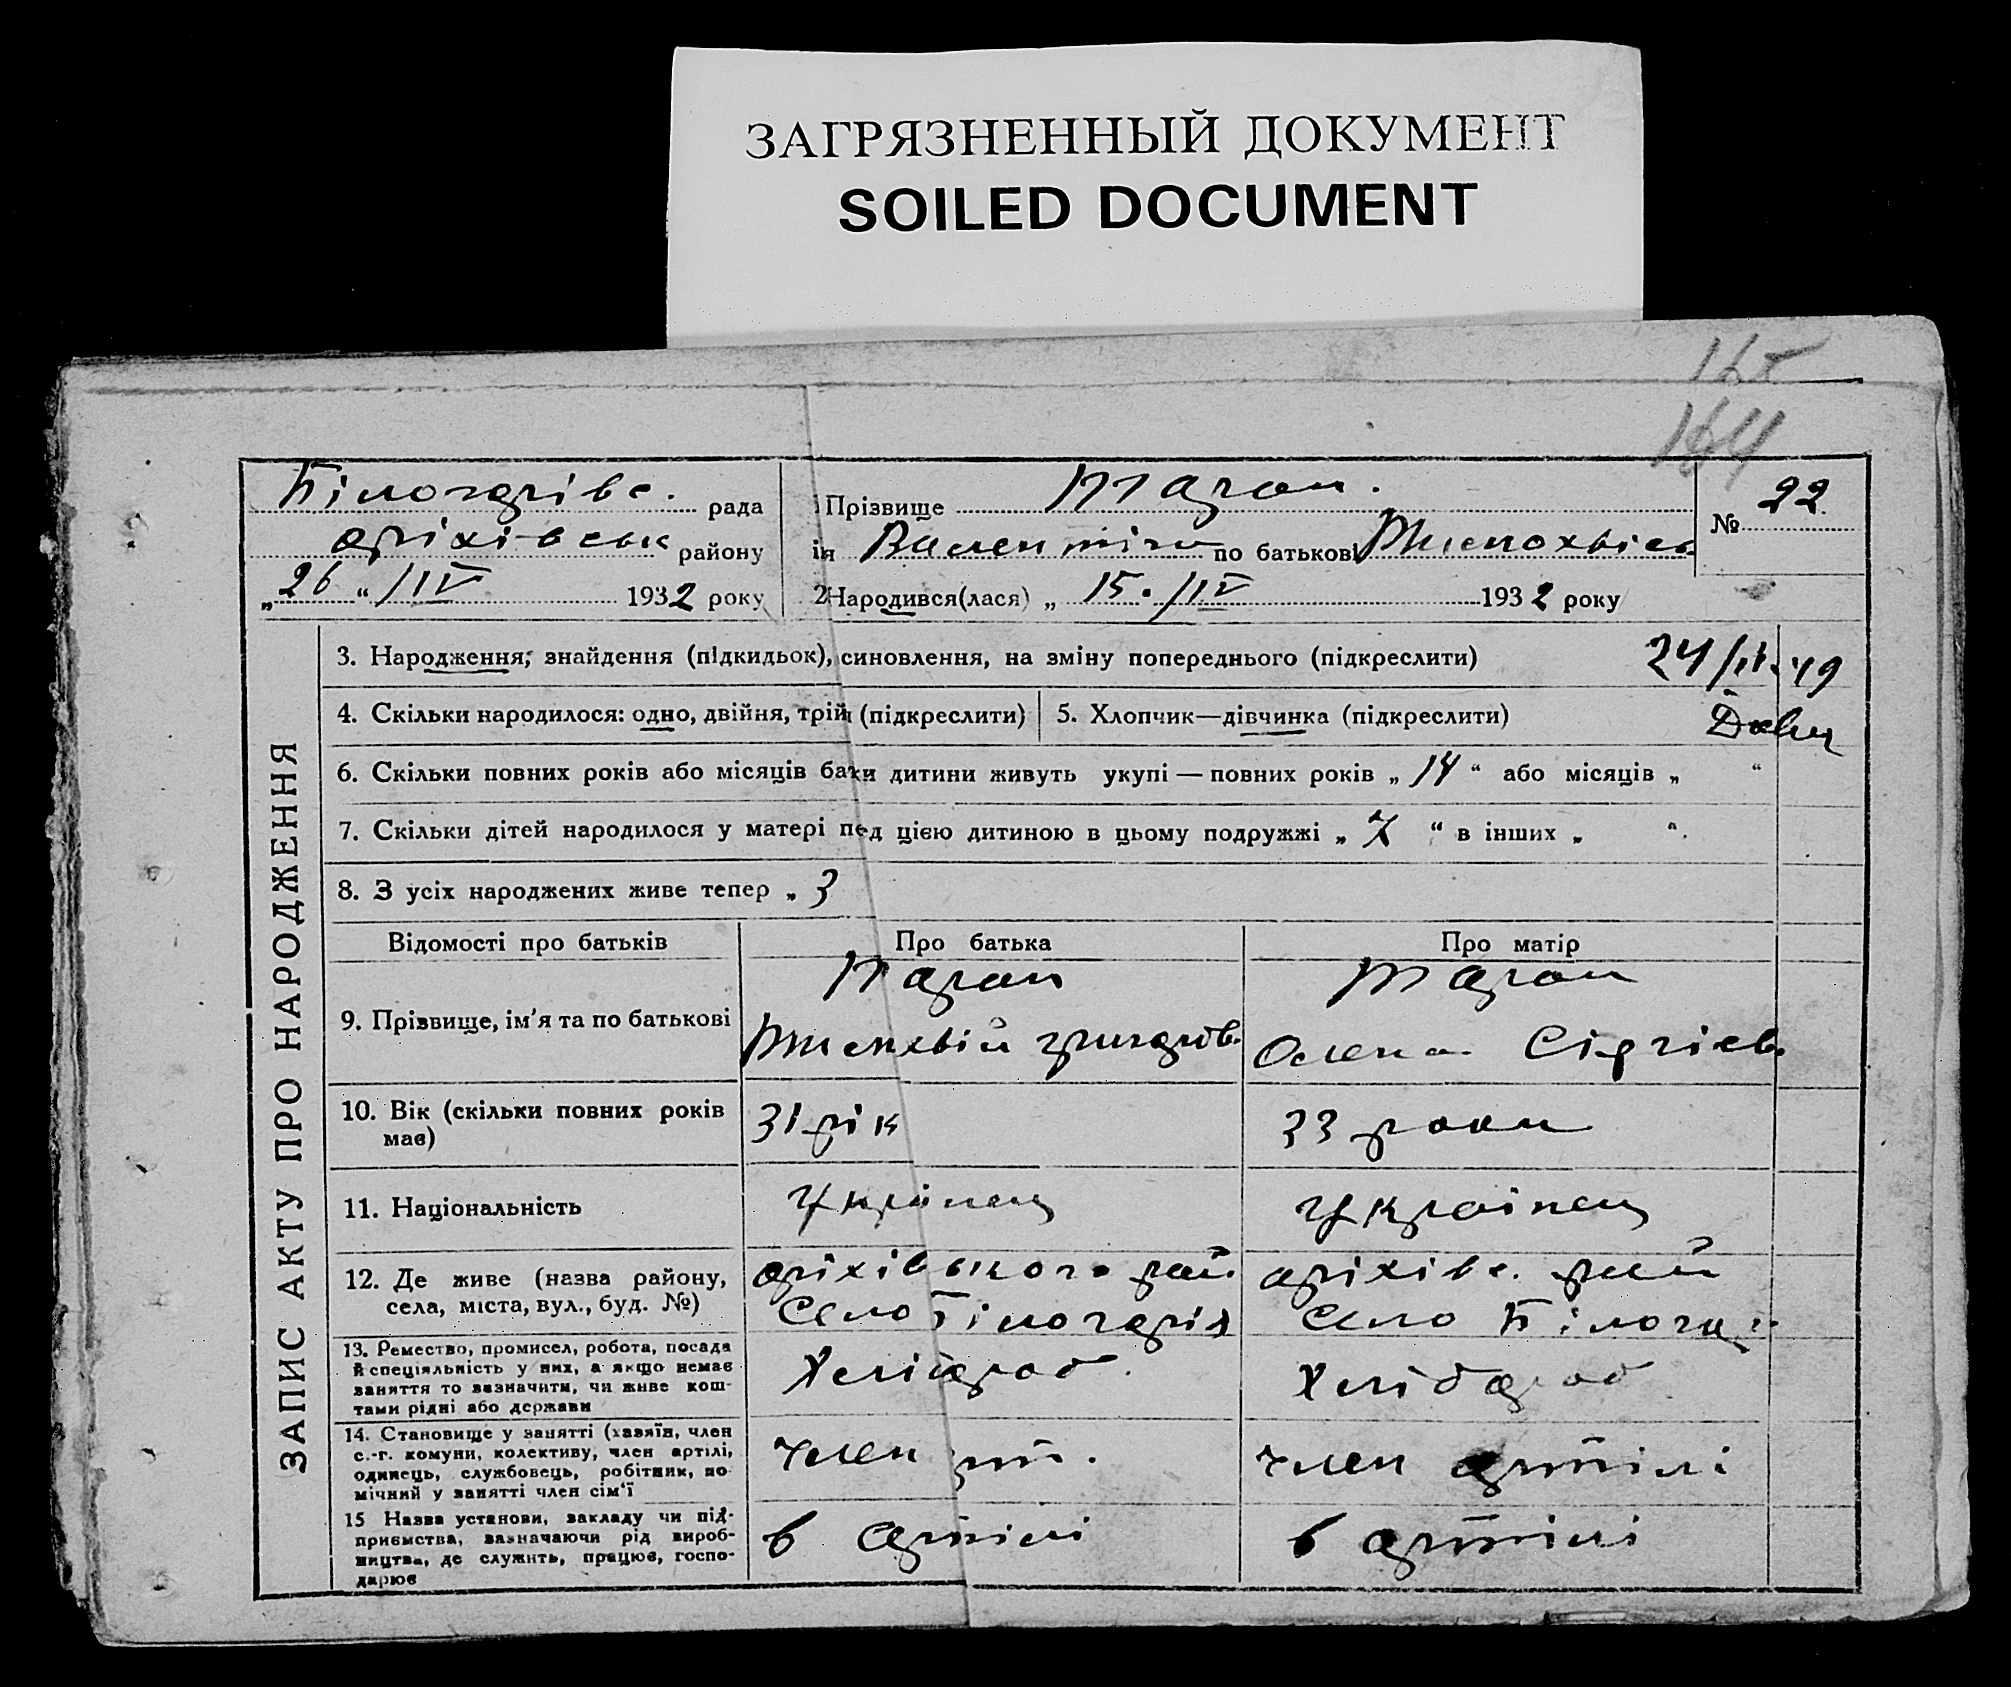 ЗАГРЯЗНЕННЫЙ ДОКУМЕНТ
SOILED DOCUMENT
165
164
Білогарівс. рада
оріхівськ району
„26“/IV 1932 року
1 Прізвище Таран.
ія Валентіна по батькові
№ 22
2 Народився(лася) „15./IV 1932 року
ЗАПИС АКТУ ПРО НАРОДЖЕННЯ
3. Народження, знайдення (підкидьок), синовлення, на зміну попереднього (підкреслити)
4. Скільки народилося: одно, двійня, трій (підкреслити)
5. Хлопчик—дівчинка (підкреслити)
6. Скільки повних років або місяців батьки дитини живуть укупі — повних років „14“ або місяців „ “
7. Скільки дітей народилося у матері пед цією дитиною в цьому подружжі „7“ в інших „ “.
8. З усіх народжених живе тепер „3
Відомості про батьків
Про батька
Про матір
9. Прізвище, ім'я та по батькові
Таран
Таран
Олена Сіргієв.
10. Вік (скільки повних років
має)
31 рік
33 роки
11. Національність
Українец
Українец
12. Де живе (назва району,
села, міста, вул., буд. №)
оріхівського рай
Село Білогаря
оріхівс. рай
Село Білогар
13. Ремество, промисел, робота, посада
й спеціяльність у них, а якщо немає
заняття то зазначити, чи живе кош-
тами рідні або держави
Хлібороб.
Хлібороб
14. Становище у занятті (хазяїн, член
с.-г. комуни, колективу, член артілі,
одинець, службовець, робітник, по-
мічний у занятті член сім'ї
член арт.
член артілі
15 Назва установи, закладу чи під-
приємства, зазначаючи рід вироб-
ництва, де служить, працює, госпо-
дарює
в артілі
в артілі